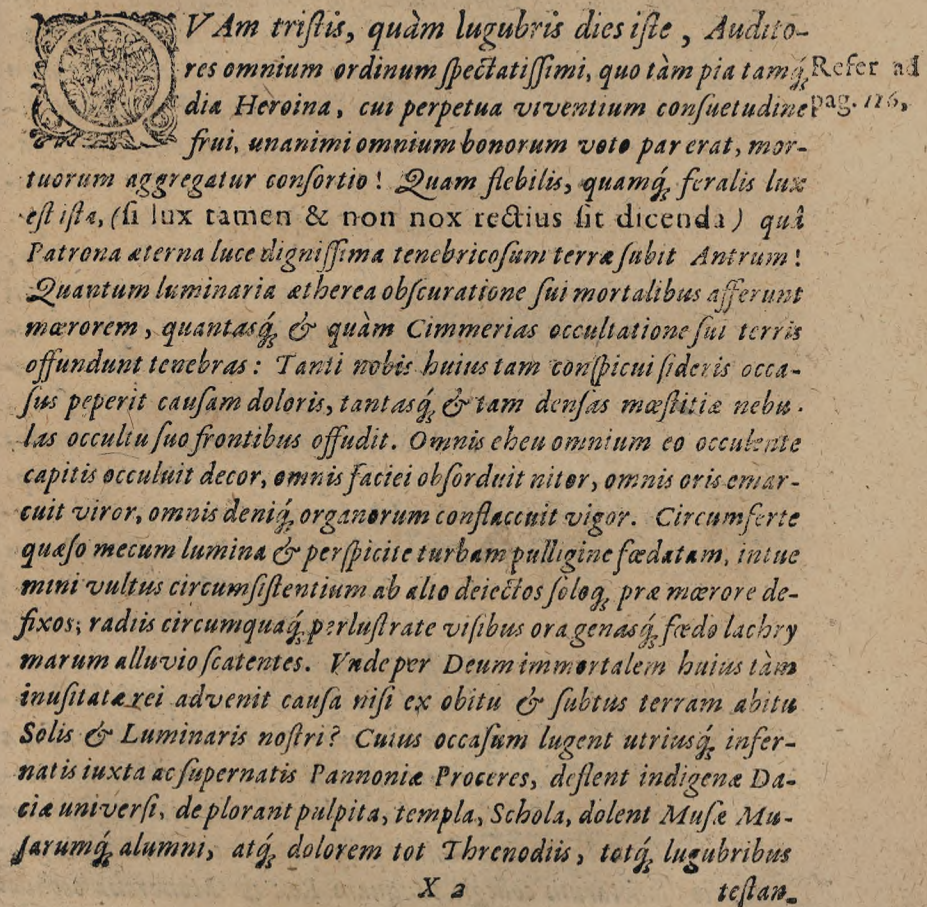 QVAm tristis, quàm lugubris dies iste, Audito-
res omnium ordinum spectatissimi, quo tàm pia tamq́;
dia Heroina, cui perpetua viventium consuetudine
frui, unanimi omnium bonorum voto par erat, mor-
tuorum aggregatur consortio! Quam flebilis, quamq́; feralis lux
est ista, (si lux tamen & non nox rectius sit dicenda) quâ
Patrona æterna luce dignissima tenebricosum terræ subit Antrum!
Quantum luminaria ætherea obscuratione sui mortalibus afferunt
mœrorem, quantasq́; & quàm Cimmerias occultatione sui terris
offundunt tenebras: Tanti nobis huius tam conspicui sideris occa-
sus peperit causam doloris, tantasq́; & tam densas mœstitiæ nebu-
las occultu suo frontibus offudit. Omnis eheu omnium eo occulente
capitis occuluit decor, omnis faciei obsorduit nitor, omnis oris emar-
cuit viror, omnis deniq́; organorum conflaccuit vigor. Circumferte
quæso mecum lumina & perspicite turbam pulligine fœdatam, intue
mini vultus circumsistentium ab alto deiectos soloq́; præ mœrore de-
fixos; radiis circumquaq́; perlustrate visibus ora genasq́; fœdo lachry
marum alluvio scatentes. Vnde per Deum immortalem huius tàm
inusitatæ rei advenit causa nisi ex obitu & subtus terram abitu
Solis & Luminaris nostri? Cuius occasum lugent utriusq́; infer-
natis iuxta ac supernatis Pannoniæ Proceres, deflent indigenæ Da-
ciæ universi, deplorant pulpita, templa, Schola, dolent Musæ Mu-
sarumq́; alumni, atq́; dolorem tot Threnodiis, totq́; lugubribus
X 2 testan-
Refer ad
pag. 116,